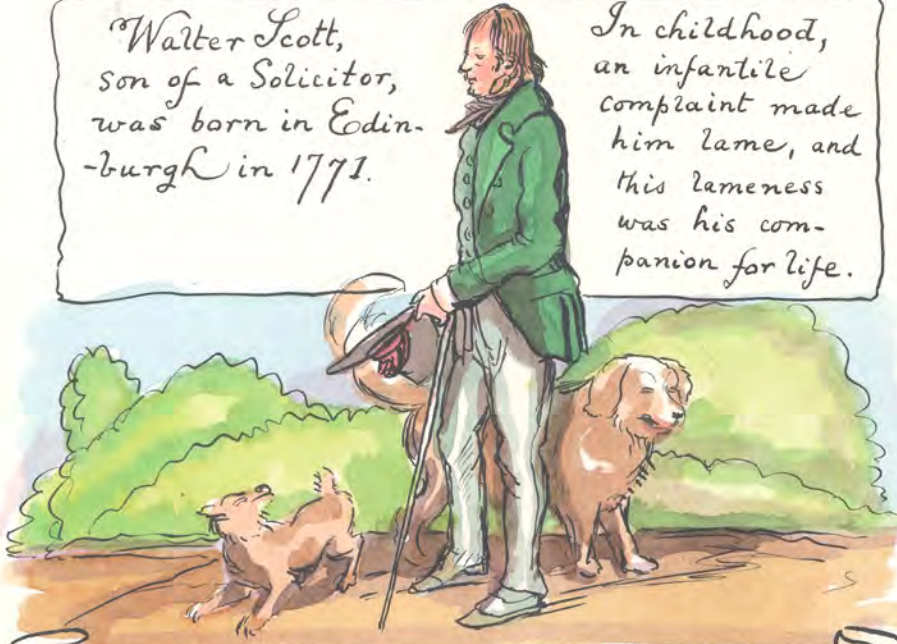 Walter Scott,
son of a Solicitor,
was born in Edin-
-burgh in 1771.
In childhood,
an infantile
complaint made
him lame, and
this lameness
was his com-
panion for life.
S